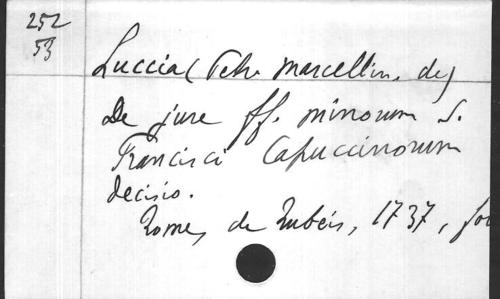 252
53
Luccia (Petr. Marcellin. de)
De jure ff. minorum S.
Francisci Capuccinorum
decisio.
Rome, de Rubeis, 1737, fo